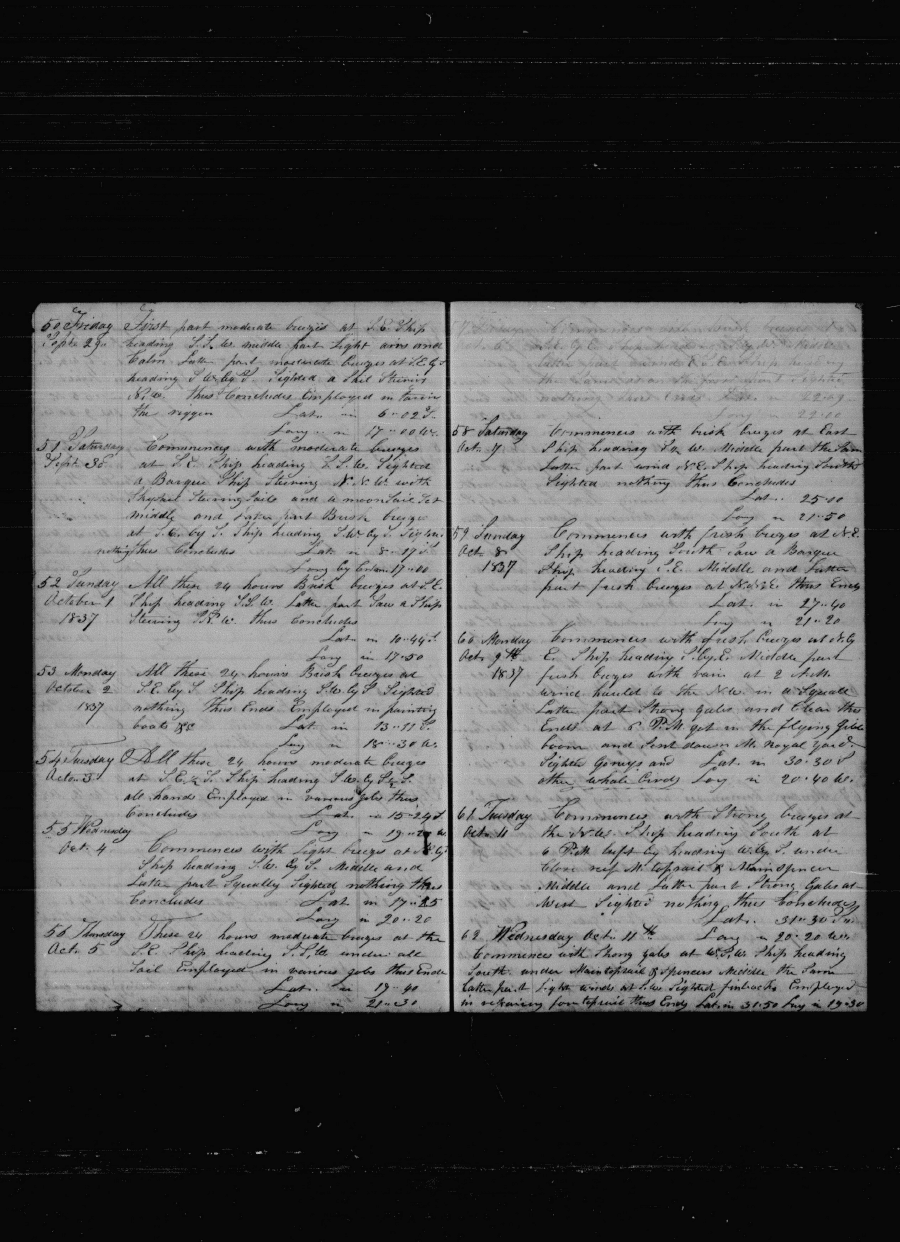 50 Friday First part moderate breezes at S.E. Ship
Sept. 29 heading S.S.W. middle part Light airs and
Calm Latter part moderate breezes at S.E. by S
heading S.W. by S. Sighted a Steering
N.W. thus Concludes Employed on
the riggen Lat. in 6-02 S.
Long. in 17-00 W.
51 Saturday Commences with moderate breezes
Sept. 30 at S.E. Ship heading S.S.W. Sighted
a Barque Ship Steering N.N.W. with
Steering Sails and a moon Sail Set
middle and Later part Brisk breezes
at S.E. by S. Ship heading S.W. by S. Sighted
nothing thus Concludes Lat in 8-17 S.
Long by 17-00
52 Sunday All these 24 hours Brisk breezes at S.E.
October 1 Ship heading S.S.W. Latter part Saw a Ship
1837 Steering N.W. thus Concludes
Lat in 10-44 S.
Long in 17-50
53 Monday All these 24 hours Brisk breezes at
October 2 S.E. by S Ship heading S.W. by S Sighted
1837 nothing thus Ends Employed in painting
boats &c Lat. in 13-11 S.
Long in 18-30 W.
54 Tuesday All these 24 hours moderate breezes
Octo. 3 at S.E. Ship heading S.W. by S
all hands Employed in various jobs thus
Concludes Lat. in 15-24 S
55 Wednesday Long in 19-
Oct. 4 Commences with Light breezes at
Ship heading S.W. by S. Middle and
Latter part Squally Sighted nothing thus
Concludes Lat in 17-25
Long in 20-20
56 Thursday These 24 hours moderate breezes at the
Oct. 5 S.E. Ship heading S.S.W. under all
Sail Employed in various jobs thus Ends
Lat. in 19-40
Long in 21-30
58 Saturday Commences with brisk breezes at East
Oct. 7 Ship heading S. by W. Middle part the Same
Latter part wind N.E. Ship heading South
Sighted nothing thus Concludes
Lat. 25-10
Long in 21-50
59 Sunday Commences with fresh breezes at N.E.
Oct 8 Ship heading South saw a Barque
1837 Ship heading S.E. Middle and Latter
part fresh breezes at thus Ends
Lat. in 27-40
Long in 21-20
60 Monday Commences with fresh breezes at N. by
Oct. 9th E. Ship heading S. by E. Middle part
1837 fresh breezes with rain at 2 A.M.
wind hauled to the N.W. in a Squall
Latter part Strong gales and Clear thus
Ends at 6 P.M. got in the flying Gibe
boom and Sent down M. royal yard.
Sighted goneys and Lat in 30-30 S
other whale birds Long in 20-40 W.
61 Tuesday Commences with Strong breezes at
Oct. 11 the N.W. Ship heading South at
6 P.M. luft by heading W. by S. under
Close reef M. topsail & Mainspencer
Middle and Latter part Strong Gales at
West Sighted nothing thus Concludes
Lat. 31-30 S in
62 Wednesday Oct. 11th Long in 20-20 W.
Commences with Strong gales at W.S.W. Ship heading
South under Maintopsail & Spencers Middle the Same
Latter part Light winds at S.W. Sighted finbacks Employed
in repairing foretopsail thus Ends Lat. in 31-50 Long in 19-30